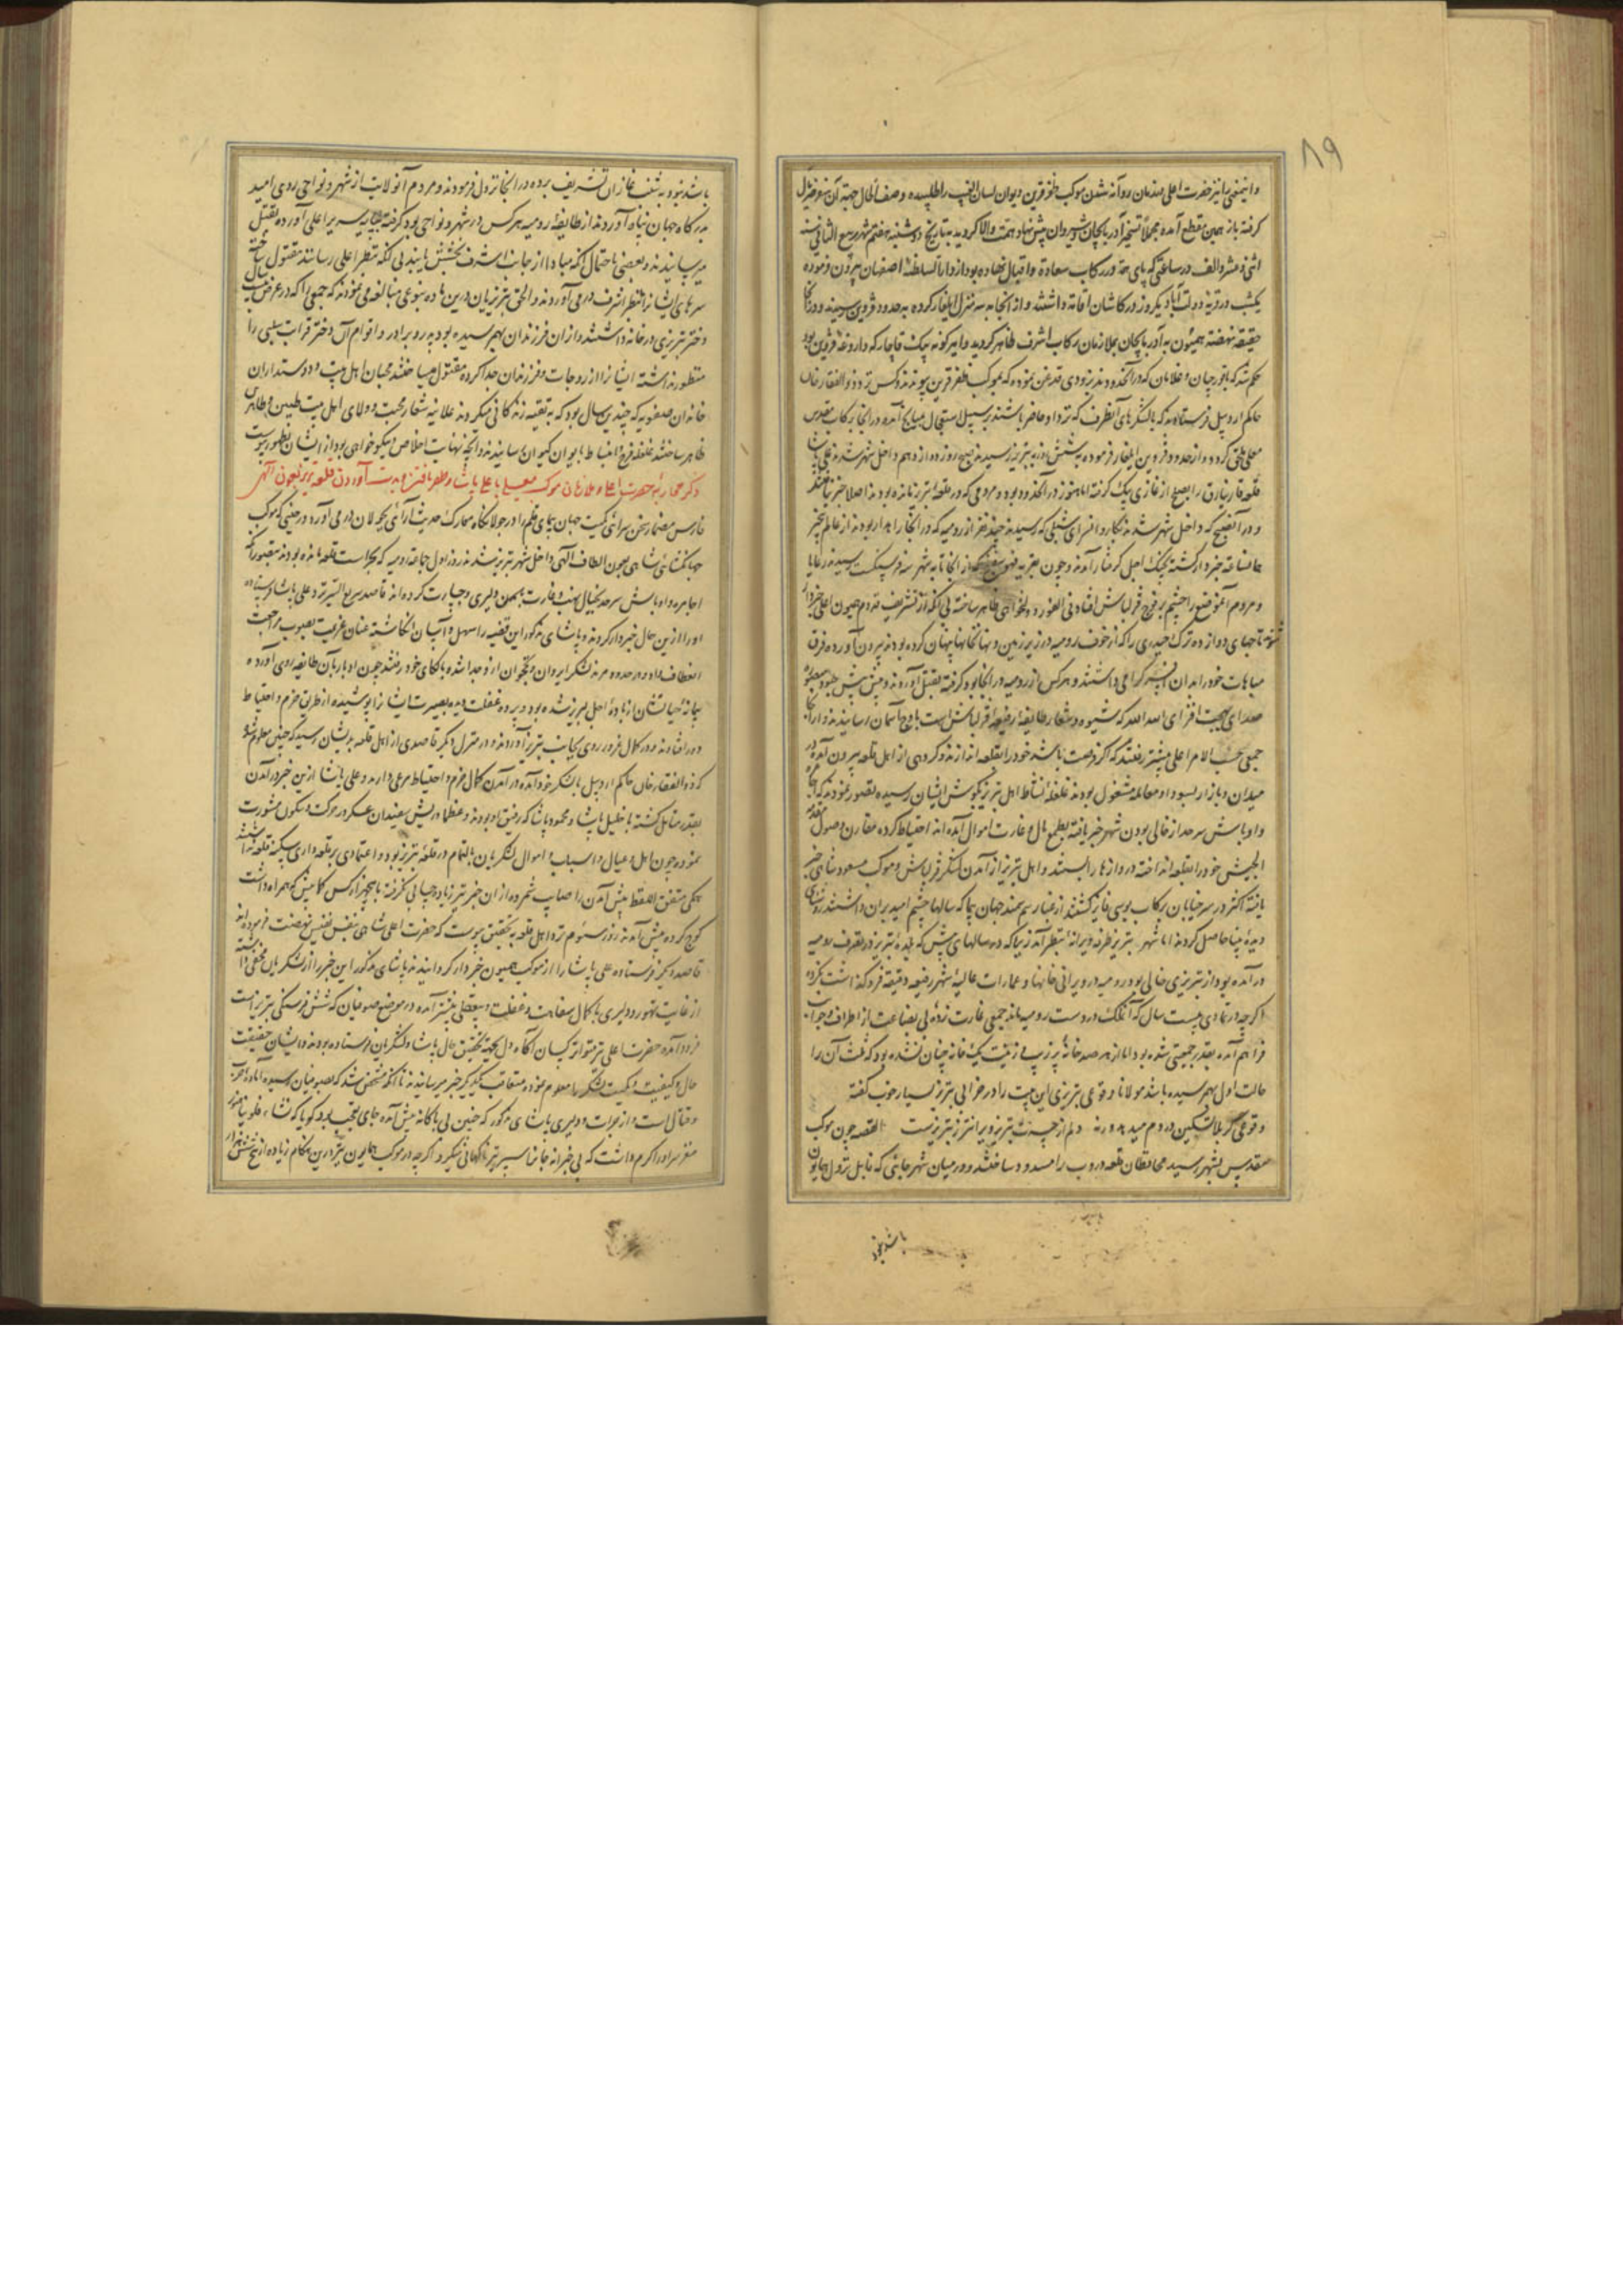 ۸۹
و این معنی را نیز حضرت اعلی همزمان روانه شدن موکب ظفر قرین دیوان لسان الغیب را طلبیده وصف الحال جهة آن سفر فال
گرفته باز همین مقطع آمده مجملاً تسخیر آذربایجان و شیروان پیش نهاد همت والا گردید به تاریخ دوشنبه هفتم شهر ربیع الثانی سنه
اثنی و عشر و الف در ساعتی که پای در رکاب سعادة و اقبال نهاده بود از دار السلطنه اصفهان بیرون فرموده
یکشب در قریه دولت آباد و یکروز در کاشان اقامة داشتند و از آنجا به سه منزل ایلغار کرده به حدود قزوین رسیدند و در آنجا
حقیقة نهضة همیون به آذربایجان بملازمان رکاب اشرف ظاهر گردید و امیر کونه بیک قاجار که داروغه قزوین بود
حکم شد که با قورچیان و غلامان که در آنحدودند بزودی قدغن نموده که بموکب ظفر قرین پیوندند و کس نزد ذوالفقار خان
حاکم اردبیل فرستادند که با لشکرهای آنطرف که نزد او حاضر باشند بر سبیل استعجال میانج آمده در آنجا برکاب مقدس
معلی ملحق گردد و از حدود قزوین ایلغار فرموده به شش روز به تبریز رسیدند صبح روز دوازدهم داخل شهر شدند علی پاشا
قلعه قارنیارق را بصلح از غازی بیک گرفته اما هنوز در آنحدود بود و مردمی که در قلعه تبریز مانده بودند اصلا خبر نیافتند
و در آن صبح که داخل شهر شدند بکاروانسرای شبلی که رسیدند چند نفر از رومیه که در آنجا راهدار بودند از عالم بیخبر
همانساعة خبردار گشته بچنگ اجل گرفتار آمدند و چون بقریه فهوسفنج که از آنجا تا به شهر سه فرسنگست رسیدند رعایا
و مردم آنموضع را چشم بر فوج قزلباش افتاد فی الفور دولتخواهی ظاهر ساخته بی آنکه از تشریف قدوم همیون اعلی خبردار
شوند تاجهای دوازده ترک حیدری را که از خوف رومیه در زیر زمین و نهانخانها پنهان کرده بودند بیرون آورده فرق
مباهات خود را بدان افسر گرامی داشتند و هرکس از رومیه در آنجا بود گرفته بقتل آوردند و پیش پیش جنود
صدای بهجت افزای الله الله که شیوه و شعار طایفه رفیعه قزلباش است باوج آسمان رسانیدند و از آنجا
جمعی بحسب الامر اعلی پیشتر رفتند که اگر فرصت باشد خود را بقلعه اندازند و گروهی از اهل قلعه بیرون آمده در
میدان و بازار بسودا و معامله مشغول بودند غلغله نشاط اهل تبریز بگوش ایشان رسیده تصور نمودند که اجامره
و اوباش سرحد از خالی بودن شهر خبر یافته بطمع مال و غارت اموال آمده اند احتیاط کرده مقارن وصول مقدمة
الجیش خود را بقلعه انداخته دروازها را بستند و اهل تبریز از آمدن لشکر قزلباش و موکب مسعود شاهی خبر
یافته اکثر در سر خیابان برکاب بوسی فایز گشتند از غبار سم سمند جهان پیما که سالها چشم امید بران داشتند روشنای
دیده بینا حاصل کردند اما شهر تبریز طرفه ویرانه بنظر آمد زیرا که در سالهای پیش که بلده تبریز در تصرف رومیه
درآمده بود از تبریزی خالی بود رومیه در ویرانی خانها و عمارات عالیه شهر رفیعه دقیقه فروگذاشت نکرده
اگرچه در تمادی بیست سال که آن ملک در دست رومیه ماند جمعی غارت زده بی بضاعت از اطراف و جوانب
فراهم آمده بقدر جمعیتی شده بود اما از هر صد خانه پر زیب و زینت یک خانه چنان نشده بود که ثلث آن را
حالت اول بهم رسیده باشد مولانا وقوعی تبریزی این بیت را در خرابی تبریز بسیار خوب گفته
وقوعی گر بلا تسکین دردم میدهد ورنه دلم از چیست تبریز و ویرانتر ز تبریزست القصه چون موکب
مقدس بشهر رسید محافظان قلعه دروب را مسدود ساختند و در میان شهر جائی که قابل نزول همایون
باشد نبود
باشد نبود به شنب غازان تشریف برده در آنجا نزول فرمودند و مردم آنولایت از شهر و نواحی روی امید
بدرگاه جهان پناه آوردند از طایفه رومیه هرکس در شهر و نواحی بود گرفته بپایه سریر اعلی آورده بقتل
میرسانیدند و بعضی باحتمال آنکه مبادا از جانب اشرف بخشش یابند بی آنکه بنظر اعلی رسانند مقتول ساخته
سرهای ایشانرا بنظر اشرف درمی آوردند و الحق تبریزیان درین ماده بنوعی مبالغه می نمودند که جمعی را که در عرض بیست سال
دختر تبریزی در خانه داشتند و از ان فرزندان بهم رسیده بود پدر و برادر و اقوام آن دختر قرابت سببی را
منظور نداشته ایشانرا از زوجات و فرزندان جدا کرده مقتول میساختند محبان اهل بیت و دوستداران
خاندان صفویه که چندین سال بود که به تقیه زندگانی میکردند علانیه شعار محبت و ولای اهل بیت طیبین و طاهرین
ظاهر ساختند غلغله فرح و انبساط بایوان کیوان رسانیدند و آنچه نهایت اخلاص و نیکوخواهی بود از ایشان بظهور پیوست
ذکر محاربه حضرت اعلی و ملازمان موکب معلی با علی پاشا و ظفر یافتن و بدست آوردن قلعه تبریز بعون الهی
فارس مضمار سخن سرائی کمیت جهان پیمای قلم را در جولانگاه معارک حدیث آرائی بجولان درمی آورد در حینی که موکب
جهانگشای شاهی بعون الطاف الهی داخل شهر تبریز شدند روز اول جماعة رومیه که بحراست قلعه مانده بودند بتصور آنکه
اجامره و اوباش سرحد بخیال نهب و غارت بچنین دلیری و جسارت کرده اند قاصد سریع السیر نزد علی پاشا فرستاده
او را ازین حال خبردار کردند و پاشای مذکور این قضیه را سهل و آسان انگاشته عنان عزیمت بصوب مراجعت
انعطاف داد و در حدود مرند لشکر ایروان و نخجوان از وجدا شده بالکای خود رفتند چون ادبار بآن طایفه روی آورده
پیمانه حیاتشان از باده اجل لبریز شده بود و پرده غفلت دیده بصیرت ایشانرا پوشیده از طریق حزم و احتیاط
دور افتادند و در کمال غرور روی بجانب تبریز آوردند و در منزل دیگر قاصدی از اهل قلعه بدیشان رسید که چنین معلوم شد
که ذوالفقار خان حاکم اردبیل با لشکر خود آمده در آمدن کمال حزم و احتیاط مرعی دارند و علی پاشا ازین خبر در آمدن
بقدر متامل گشته با خلیل پاشا و محمود پاشا که رفیق او بودند و عظما و ریش سفیدان عسکر در حرکت و سکون مشورت
نموده چون اهل و عیال و اسباب و اموال لشکریان بالتمام در قلعه تبریز بود و اعتمادی بر قلعه داری سکنه قلعه نداشتند
همگی متفق اللفظ پیش آمدن را صایب شمرده از ان خبر نیز زیاده حسابی نگرفته با پنجهزار کس کمابیش که همراه داشت
کوچ کرده پیش آمدند روز سئوم نزد اهل قلعه به تحقیق پیوست که حضرت اعلی شاهی بنفس نفیس نهضت فرموده اند
قاصد دیگر فرستاده علی پاشا را از موکب همیون خبردار گردانیدند پاشای مذکور این خبر را از لشکریان مخفی داشته
از غایت تهور و دلیری با کمال سفاهت و غفلت و بیعقلی پیشتر آمده در موضع صوفیان که شش فرسنگی تبریز است
فرود آمده حضرت اعلی نیز متواتر کسان آگاه دل بجهة تحقیق حال پاشا و لشکریان فرستاده بودند و ایشان حقیقت
حال و کیفیت و کمیت لشکر را معلوم نموده متعاقب یکدیگر خبر میرسانیدند تا آنکه مشخص شد که بصوفیان رسیده آماده حرب
و قتال است و از جرات و دلیری پاشای مذکور که چنین بی باکانه پیش آمده جای تعجب بود گویا که نشاء
مغز سر او را گرم داشت که بی خبرانه جانرا سپر تیر ناگهانی میکرد اگرچه در موکب همایون نیز درین هنگام زیاده از پنج شش هزار